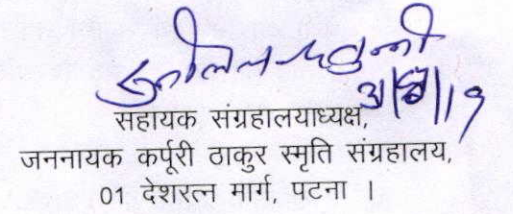 सहायक संग्रहालयाध्यक्ष,
जननायक कर्पूरी ठाकुर स्मृति संग्रहालय,
01 देशरत्न मार्ग, पटना ।